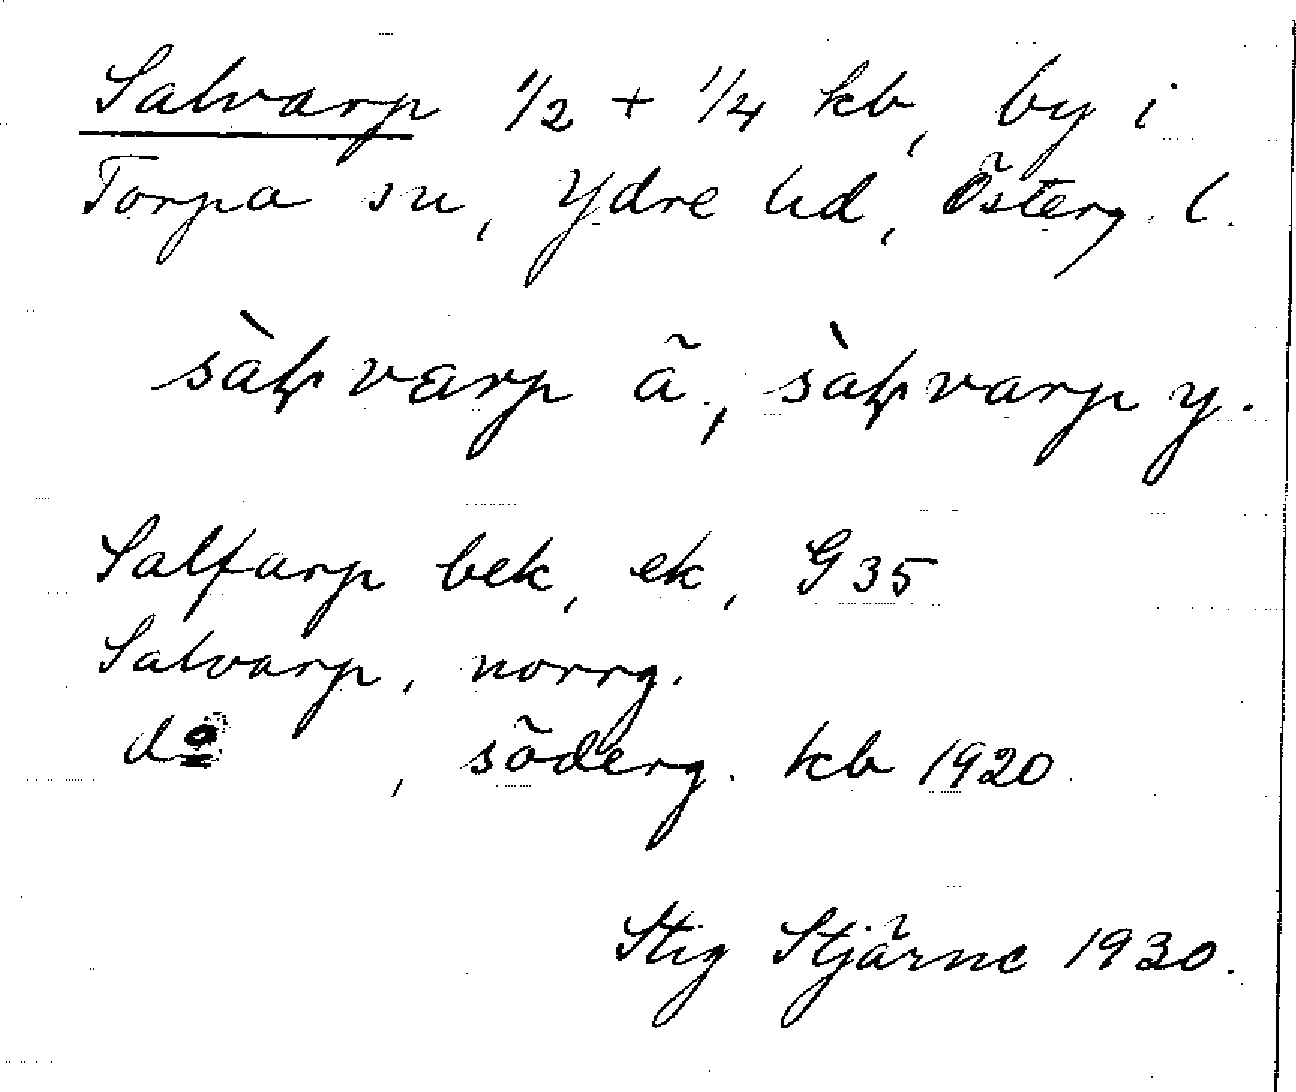 Salvarp 1/2 + 1/4 kb, by i
Torpa sn, Ydre hd, Österg. l.
varp ä.,  varp y.
Salfarp bek, ek, G35
Salvarp, norrg.
do , söderg. kb 1920
Stig Stjärne 1930.